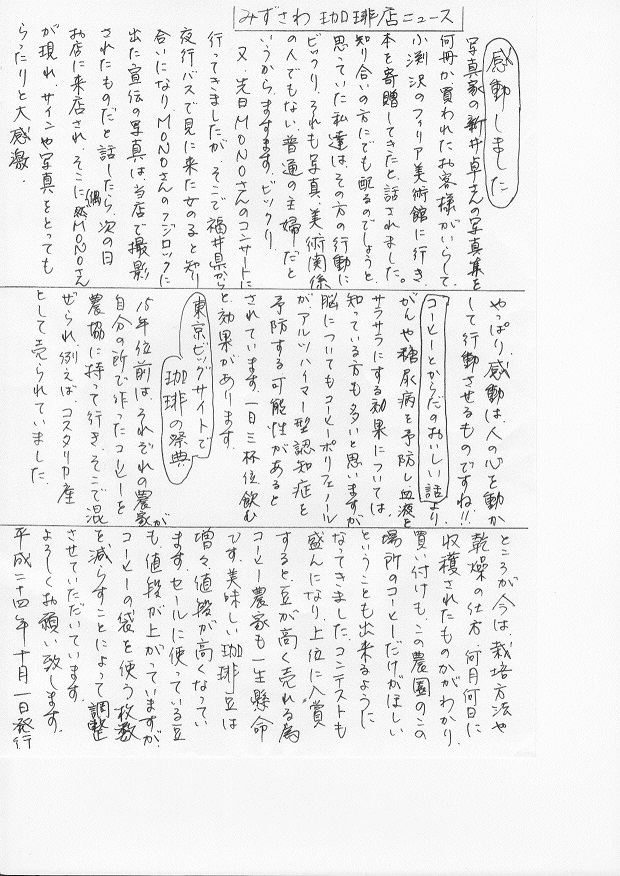 みずさわ 珈琲店ニュース
感動しました
写真家の新井卓さんの写真集を
何冊か買われたお客様がいらして
小淵沢のフィリア美術館に行き
本を寄贈してきたと、話されました。
知り合いの方にでも配るのでしょうと
思っていた私達は、その方の行動に
ビックリ、それも写真、美術関係
の人でもない普通の主婦だと
いうから、ますます、ビックリ
又、先日MONOさんのコンサートに
行ってきましたが、そこで福井県から
夜行バスで見に来た女のると知り
合いになり、MONOさんのフジロックに
出た宣伝の写真は当店で撮影
されたものだと話したら、次の日
お店に来店され、そこに偶然MONOさん
が現れ サインや写真をとっても
らったりと大感激
やっぱり、感動は、人の心を動か
して行動させるものですね!!
コーヒーとからだのおいしい話より
がんや糖尿病を予防し血液を
サラサラにする効果については
知っている方も多いと思いますが
脳についてもコーヒーポリフェノール
が、アルツハイマー型認知症を
予防する可能性があると
されています。一日三杯位飲む
と効果があります。
東京ビッグサイトで
珈琲の祭典
15年位前はそれぞれの農家が
自分の所で作ったコーヒーを
農協に持って行き、そこで混
ぜられ、例えば、コスタリカ産
として売られていました。
ところが今は、栽培方法や
乾燥の仕方、何月何日に
収穫されたものかがわかり、
買い付けも、この農園のこの
場所のコーヒーだけがほしい
ということも出来るように
なってきました。コンテストも
盛んになり、上位に入賞
すると、豆が高く売れる為
コーヒー農家も一生懸命
です。美味しい珈琲豆は
増々値段が高くなってい
ます。セールに使っている豆
も値段が上がっていますが、
コーヒーの袋を使う枚数
を減らすことによって調整
させていただいています
よろしくお願い致します。
平成二十四年十月一日発行